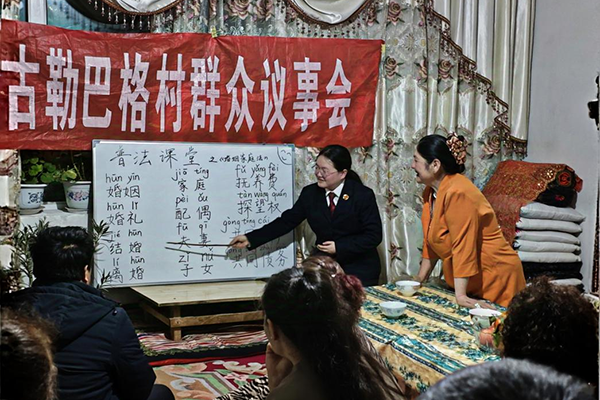 古勒巴格村群众议事会
普法课堂 之《婚姻家庭法》
hūn yīn jiā tíng fǔ yǎng fèi
婚姻 家庭 抚养费
hūn lǐ pèi ǒu tàn wàng quán
婚礼 配偶 探望权
jié hūn fū qī gòng tóng cái
结婚 夫妻
lí hūn zǐ nǚ
离婚 子女 共同债务